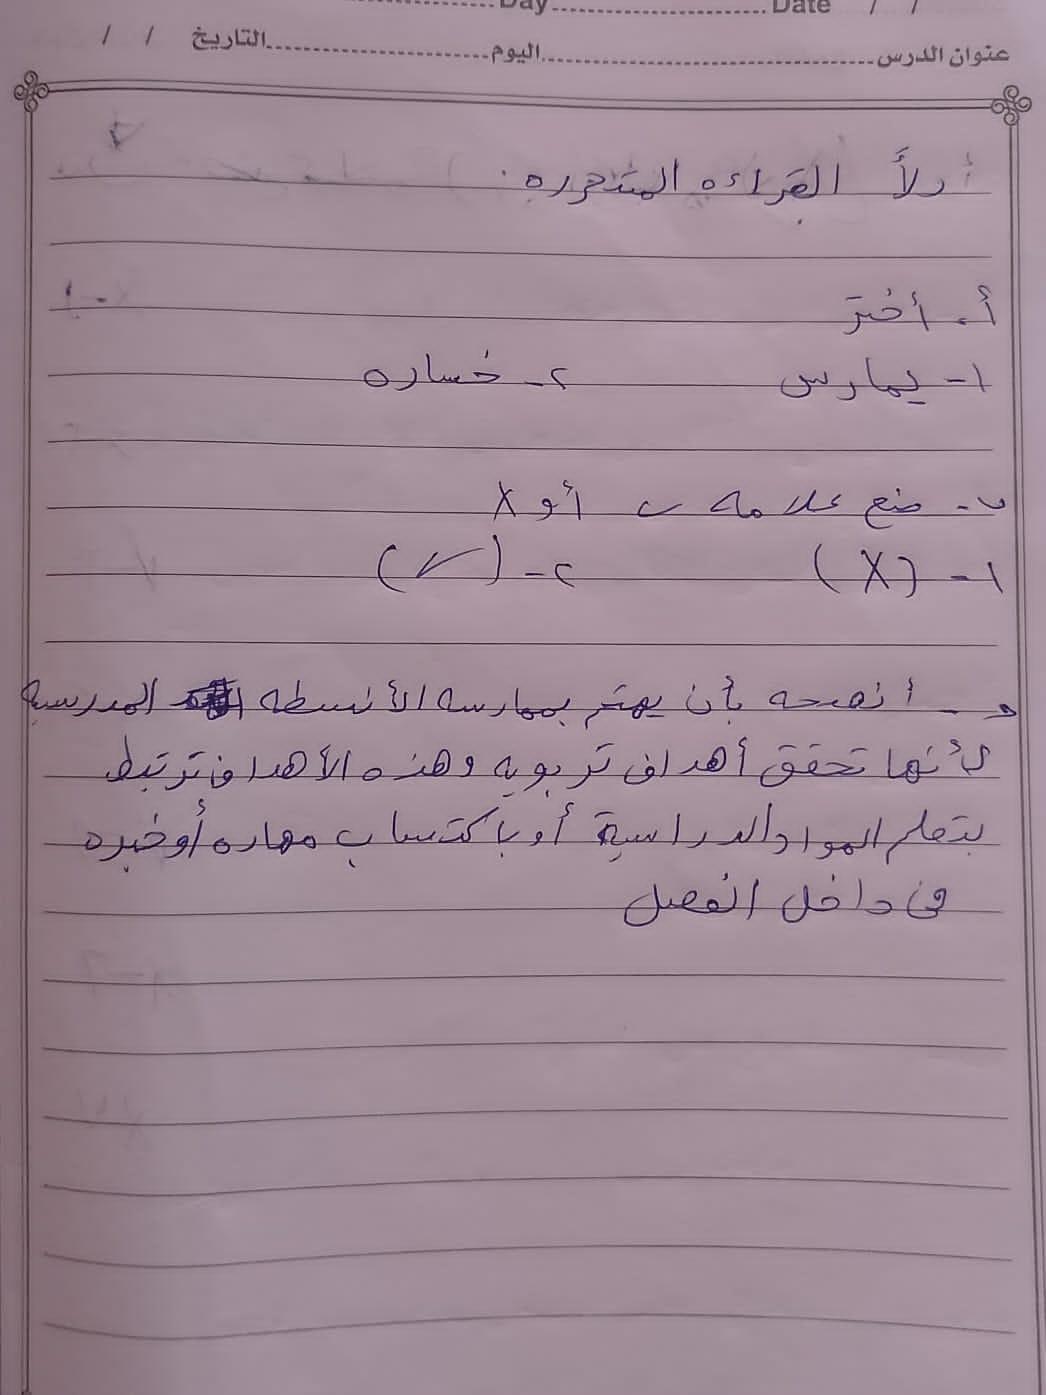 Day Date / /
عنوان الدرس اليوم التاريخ / /
أولاً القراءه المتحرره
أ. أختر
١- يمارس ٢- خساره
ب- ضع علامه ✓ أو X
١- (X) ٢- (✓)
ج- أنصحه بأن يهتم بممارسه الأنسطه المدرسية
لأنها تحقق أهداف تربويه وهذه الأهداف ترتبط
بتعلم المواد الدراسية أو باكتساب مهاره أو خبره
في داخل الفصل